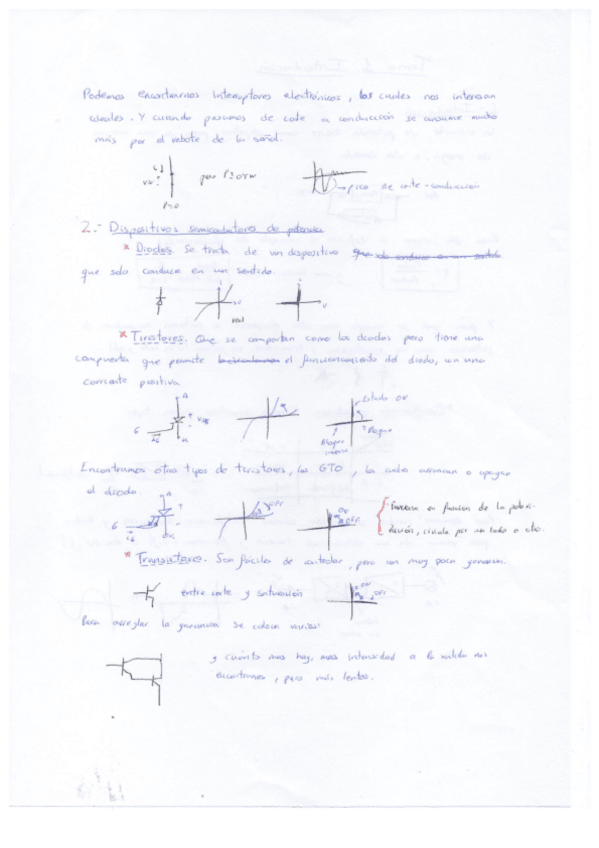 Podemos encontrarnos interruptores electrónicos, los cuales nos interesan
ideales. Y cuando pasamos de corte a conducción se consume mucho
más por el rebote de la señal.
P=0
→ pico de corte-conducción
2.- Dispositivos semiconductores de potencia
* Diodos. Se trata de un dispositivo
que solo conduce en un sentido.
i
V
real
* Tiristores. Que se comportan como los diodos pero tiene una
compuerta que permite el funcionamiento del diodo, con una
corriente positiva
A
G
K
Estado ON
Bloqueo
Bloqueo inverso
Encontramos otro tipos de tiristores, los GTO, los cuales arrancan o apagan
el diodo.
A
G
OFF
ON
OFF
Funciona en función de la polari-
zación, circula por un lado o otro.
* Transistores. Son fáciles de controlar, pero con muy poca ganancia.
entre corte y saturación
ON
OFF
Para arreglar la ganancia se colocan varios:
y cuánto mas hay, mas intensidad a la salida nos
encontramos, pero más lentos.